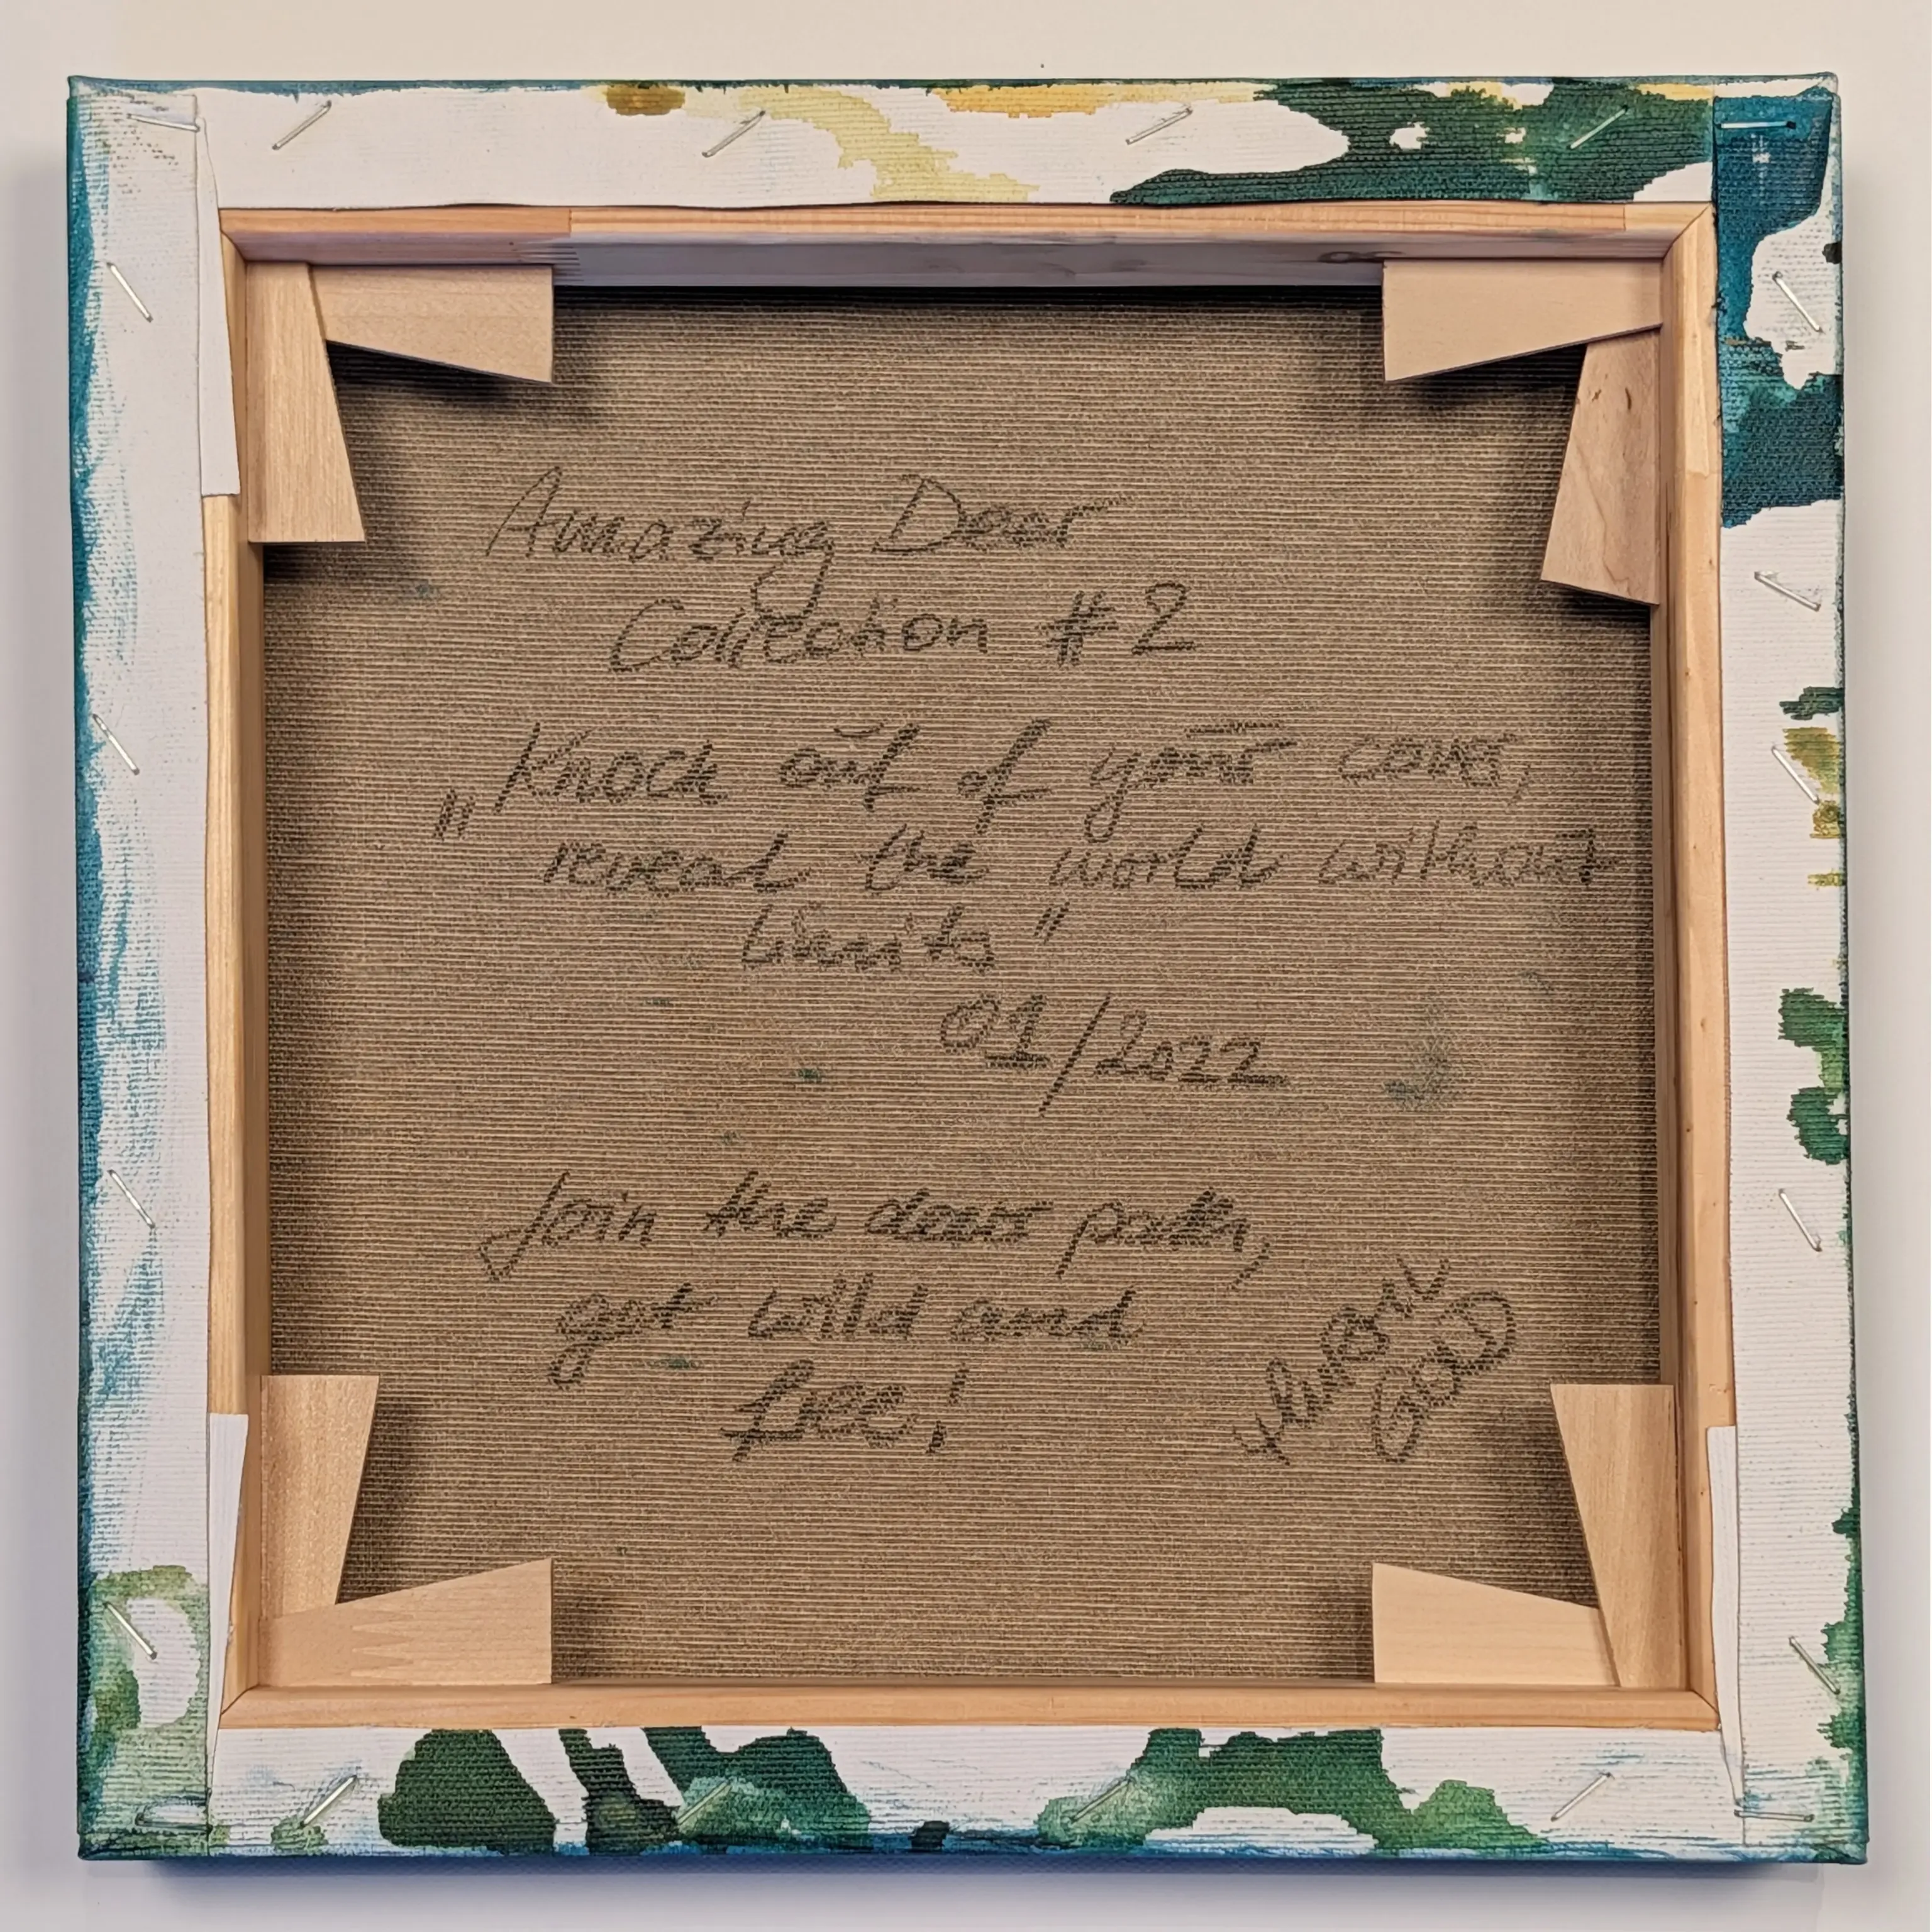 Amazing Deer
Collection #2
„Knock out of your cover,
reveal the world without
limits"
01/2022
Join the deer path,
get wild and
free!